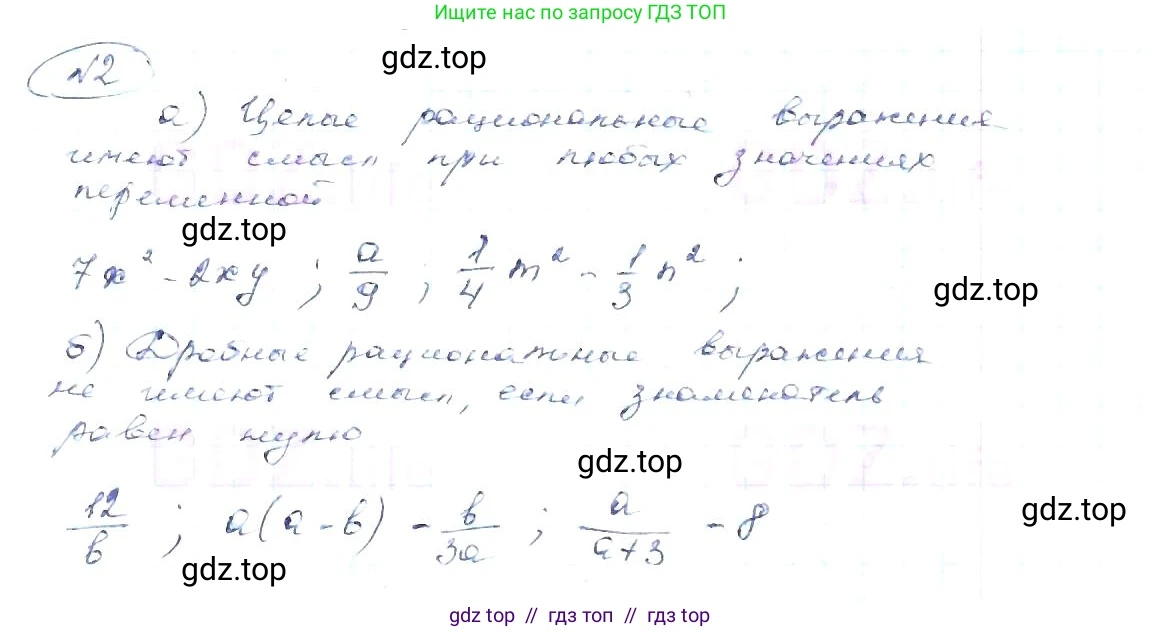 Ищите нас по запросу ГДЗ ТОП
№2
gdz.top
а) Целые рациональные выражения
имеют смысл при любых значениях
переменной
gdz.top
7x² - 2xy ; a/9 ; 1/4 m² - 1/3 n² ;
gdz.top
б) Дробные рациональные выражения
не имеют смысл, если знаменатель
равен нулю
gdz.top
12/b ; a(a - b) - b/3a ; a/a+3 - 8
gdz.top
gdz.top
gdz top // гдз топ // гдз top